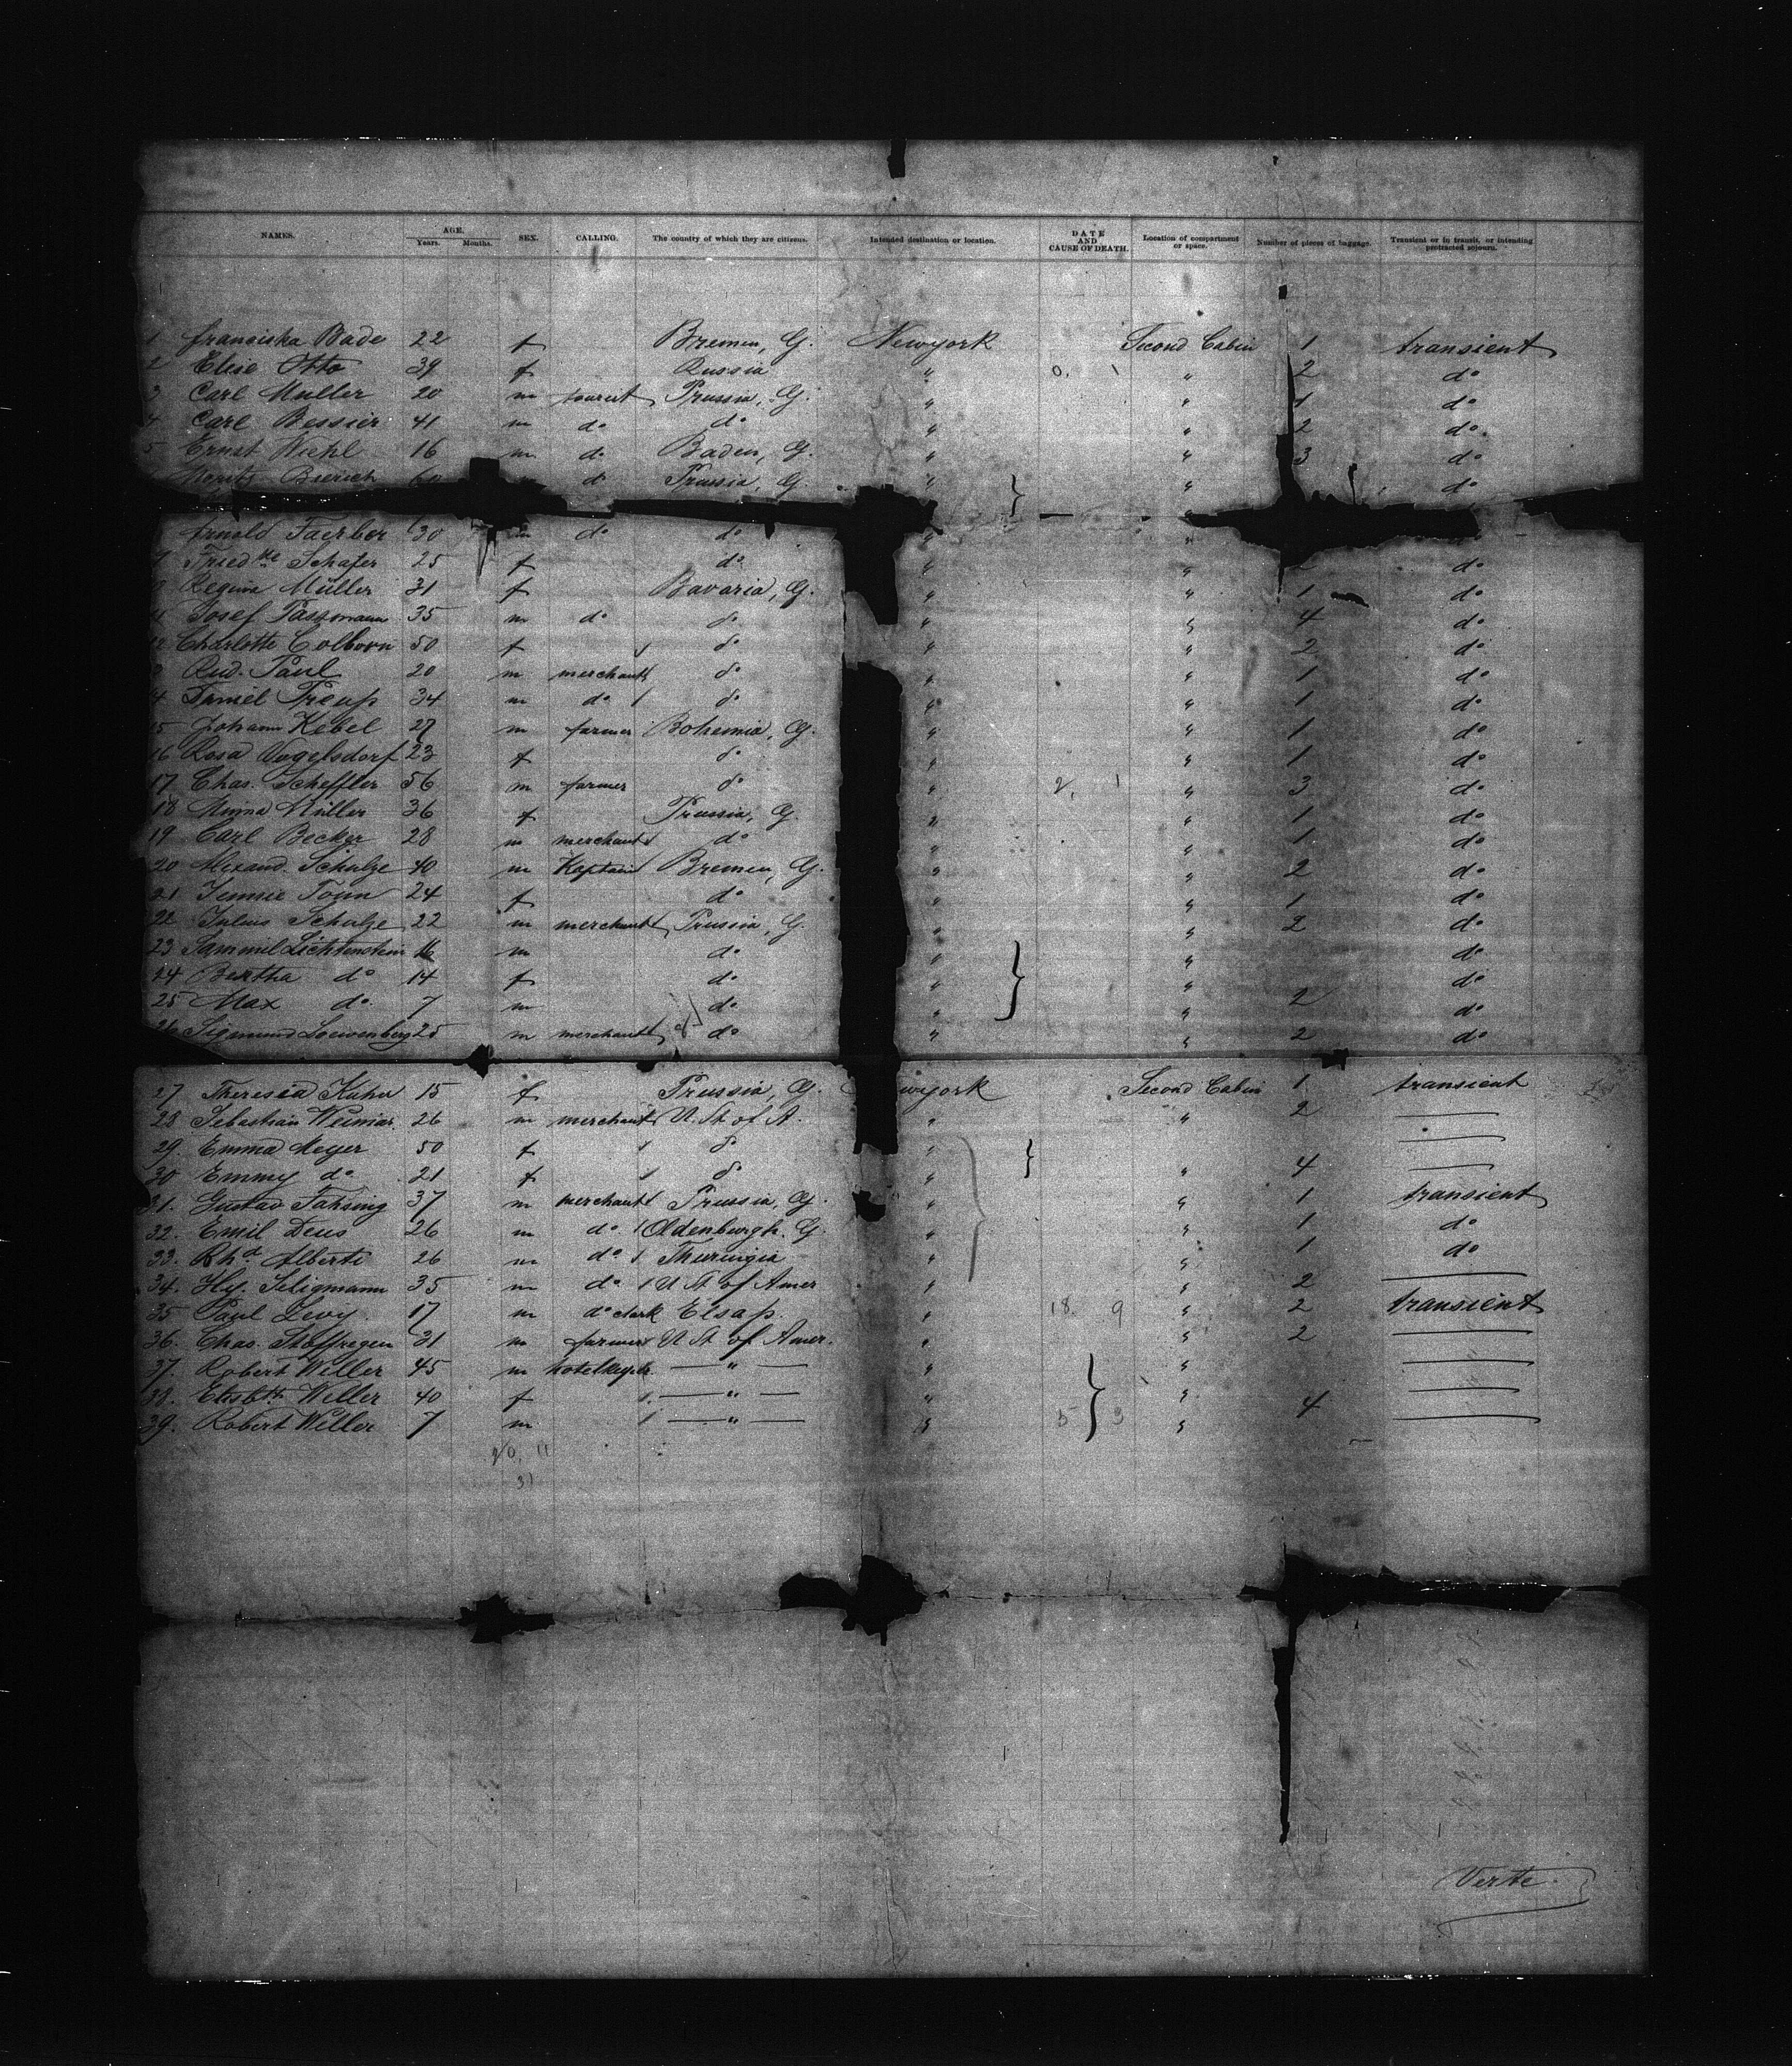 NAMES. AGE. Years. Months. SEX. CALLING. The country of which they are citizens. Intended destination or location. DATE AND CAUSE OF DEATH. Location of compartment or space. Number of pieces of baggage. Transient or in transit, or intending protracted sojourn.
1 Franciska Bade 22 f Bremen, G. Newyork Second Cabin 1 transient
2 Elise Otto 39 f Russia " 0. 1 " 2 do
3 Carl Muller 20 m tourist Prussia, G. " " 1 do
4 Carl Bessier 41 m do do " " 2 do
5 Ernst Wiehl 16 m do Baden, G. " " 3 do
Moritz Bierich 60 do Prussia, G. " " do
Arnold Faerber 30 m do do " "
Friedke Schafer 25 f do " " 2 do
Regina Müller 31 f Bavaria, G. " " 1 do
Josef Passmann 35 m do do " " 4 do
12 Charlotte Colborn 50 f do " " 2 do
Rud. Paul 20 m merchant do " " 1 do
4 Daniel Treup 34 m do do " " 1 do
15 Johann Kebel 27 m farmer Bohemia, G. " " 1 do
16 Rosa Vogelsdorf 23 f do " " 1 do
17 Chas. Scheffler 56 m farmer do " 2, 1 " 3 do
18 Anna Müller 36 f Prussia, G. " " 1 do
19 Carl Becker 28 m merchant do " " 1 do
20 Alexand. Schulze 40 m Kaptain Bremen, G. " " 2 do
21 Jennie 24 f do " " 1 do
22 Julius Schulze 22 m merchant Prussia, G. " " 2 do
23 Sammiel Lichtenstein 16 m do " " do
24 Bertha do 14 f do " " do
25 Max do 7 m do " " 2 do
26 Sigmund Loewenberg 25 m merchant do " " 2 do
27 Theresia Kuhn 15 f Prussia, G. wyork Second Cabin 1 transient
28 Sebastian Weimar. 26 m merchant U. St. of A. " " 2 —
29. Emma Meyer 50 f do " —
30 Emmy do 21 f do " " 4 —
31. Gustav Fahsing 37 m merchant Prussia, G. " " 1 transient
32. Emil Deus 26 m do Oldenburgh. G. " " 1 do
33. Rhd Alberti 26 m do Thuringia " " 1 do
34. Hy. Seligmann 35 m do U St of Amer " " 2 —
35 Paul Levy 17 m do clerk Elsass. " 18. 9 " 2 transient
36. Chas. Stoffregen 31 m farmer U St of Amer. " " 2 —
37. Robert Weller 45 m hotelkeeper — " — " " —
38. Elisbth Weller 40 f — " — " " —
39. Robert Weller 7 m — " — " 5 3 " 4 —
20, 11
31
Verte.